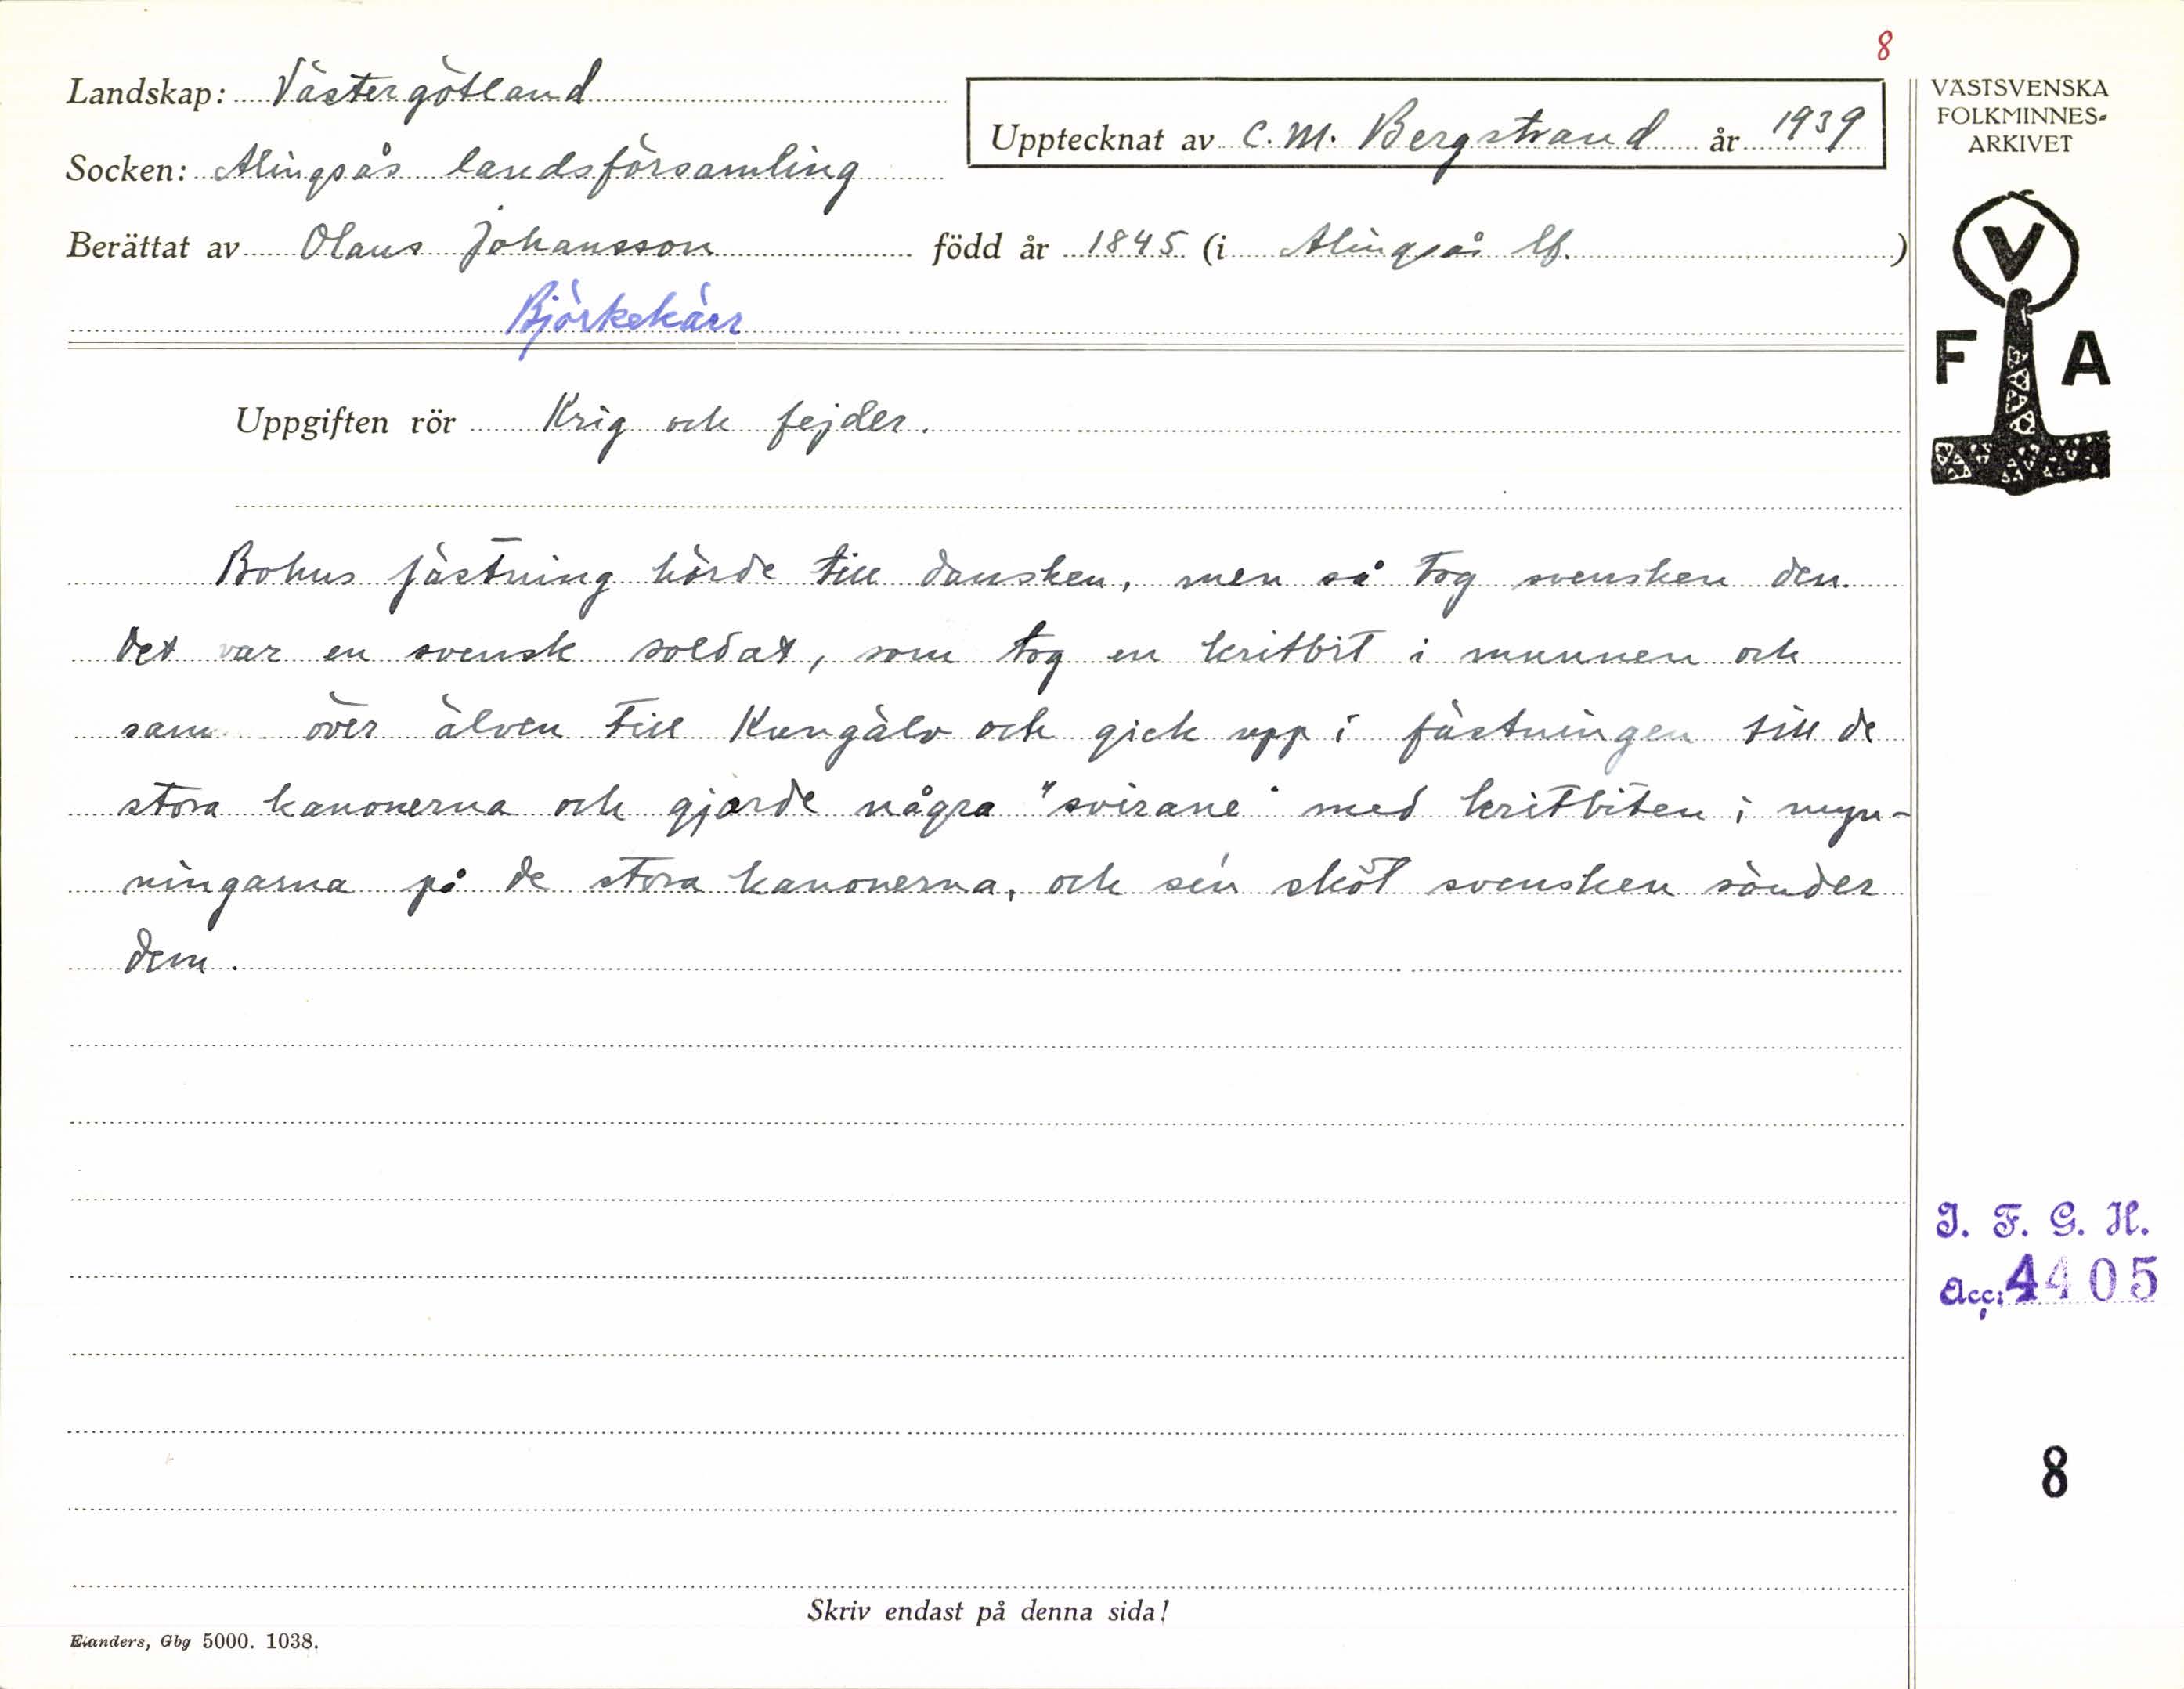 8
Landskap: Västergötland
Upptecknat av C. M. Bergstrand år 1939
Socken: Alingsås landsförsamling
Berättat av Olaus Johansson född år 1845 (i Alingsås lf. )
Björkekärr
VÄSTSVENSKA
FOLKMINNES-
ARKIVET
V
F A
Uppgiften rör Krig och fejder.
Bohus fästning hörde till dansken, men så tog svensken den.
Det var en svensk soldat, som tog en kritbit i munnen och
sam över älven till Kungälv och gick upp i fästningen till de
stora kanonerna och gjorde några "svirane" med kritbiten i myn-
ningarna på de stora kanonerna, och sén sköt svensken sönder
dem.
I. F. G. H.
Acc: 4405
8
Skriv endast på denna sida!
Elanders, Gbg 5000. 1038.